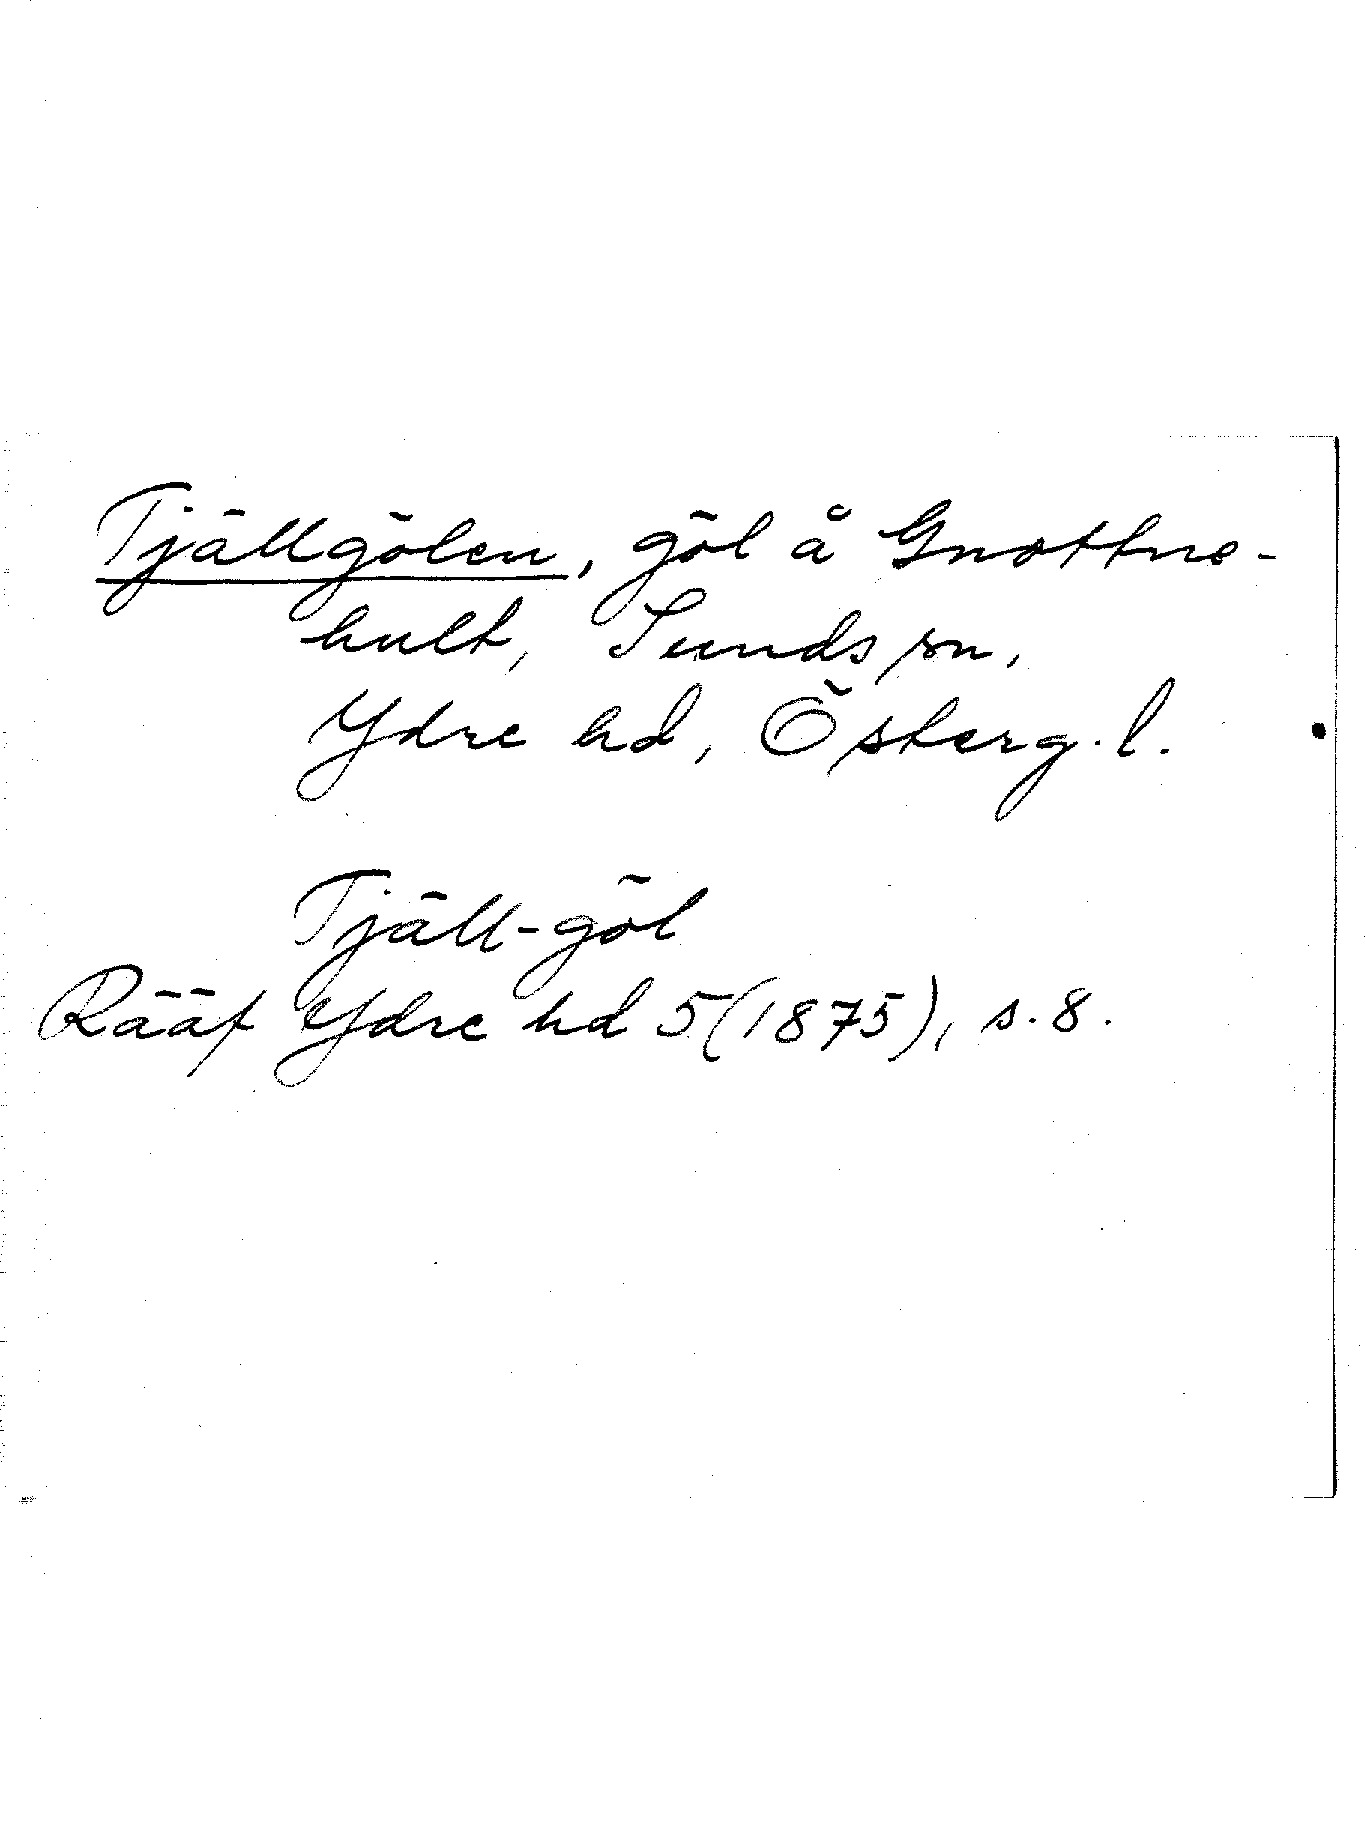 Tjällgölen, göl å Gnottne-
hult, Sunds sn,
Ydre hd, Österg. l.
Tjäll-göl
Rääf Ydre hd 5 (1875), s. 8.